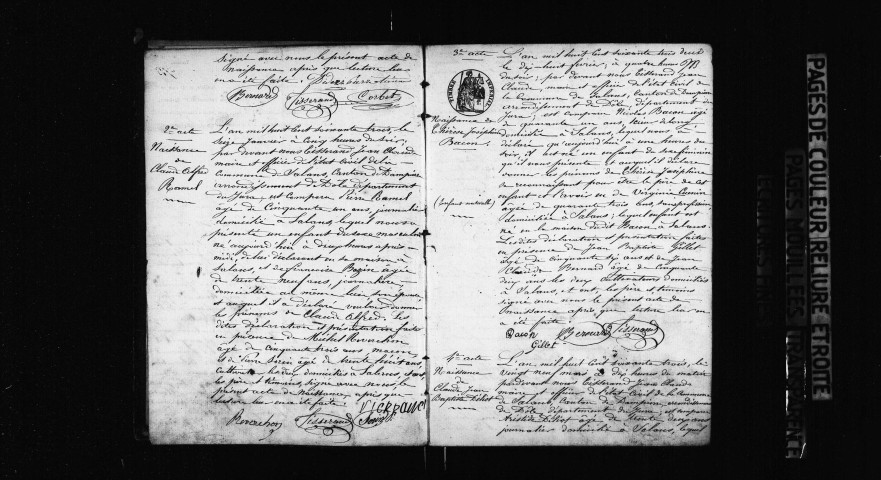 Signé avec nous le présent acte de
Naissance après que lecture leur
en a été faite.
Bernard Tisserand Corbet
2e acte
Naissance
de
Claude Alfred
Ramel
L'an mil huit cent soixante trois, le
seize janvier à cinq heures du soir,
par devant nous Tisserand Jean Claude
maire et officier de l'état civil de la
Commune de Salans, Canton de Dampierre
arrondissement de Dole département
du Jura, est comparu Pierre Ramel
âgé de Cinquante un ans, journalier
domicilié à Salans, lequel nous a
présenté un enfant du sexe masculin
né aujourd'hui à deux heures après-
midi, de lui déclarant en sa maison à
Salans, et de Françoise Bazin âgée
de trente neuf ans, journalière
domiciliée au même lieu, son épouse
et auquel il a déclaré vouloir donner
les prénoms de Claude Alfred. Les
dites déclaration et présentation faites
en présence de Michel Rovachon
âgé de cinquante trois ans, maçon
et de Pierre âgé de trente huit ans
Cultivateur, domiciliés à Salans, et ont
les père et témoins, signé avec nous le
présent acte de Naissance après que
lecture leur en a été faite.
Rovachon Tisserand
3e acte
Naissance de
Thérèse Joséphine
Bacon.
(Enfant naturelle)
L'an mil huit cent soixante trois
le dix huit février, à quatre heures
du soir, par devant nous Tisserand Jean
Claude, maire et officier de l'état civil de
la Commune de Salans, Canton de Dampierre
arrondissement de Dole, département du
Jura; est comparu Nicolas Bacon âgé
de quarante un ans,
domicilié à Salans, lequel nous a
déclaré qu'aujourd'hui à une heure du
soir, il est né un enfant du sexe féminin
qu'il nous présente et auquel il déclare
donner les prénoms de Thérèse Joséphine
se reconnaissant pour être le père de cet
enfant et l'avoir eu de Virginie
âgée de quarante trois ans, sans profession
domiciliée à Salans; lequel enfant est
né en la maison dudit Bacon, à Salans.
Les dites déclaration et présentation faites
en présence de Jean Baptiste Gillot
âgé de cinquante six ans et de Jean
Claude Bernard âgé de cinquante
deux ans les deux cultivateurs domiciliés
à Salans, et ont, les père et témoins
signé avec nous le présent acte de
Naissance après que lecture leur en
a été faite.
Bacon Bernard Tisserand
Gillot
4e acte
Naissance
de
Claude Jean
Baptiste
L'an mil huit cent soixante trois, le
vingt mars à dix heures du matin
pardevant nous Tisserand Jean Claude
maire et officier de l'état civil de la Commune
de Salans, Canton de Dampierre, arrondissement
de Dole, département du Jura, est comparu
âgé de trente
journalier domicilié à Salans, lequel
PAGES DE COULEUR RELIURE ETROITE
PAGES MOUILLEES